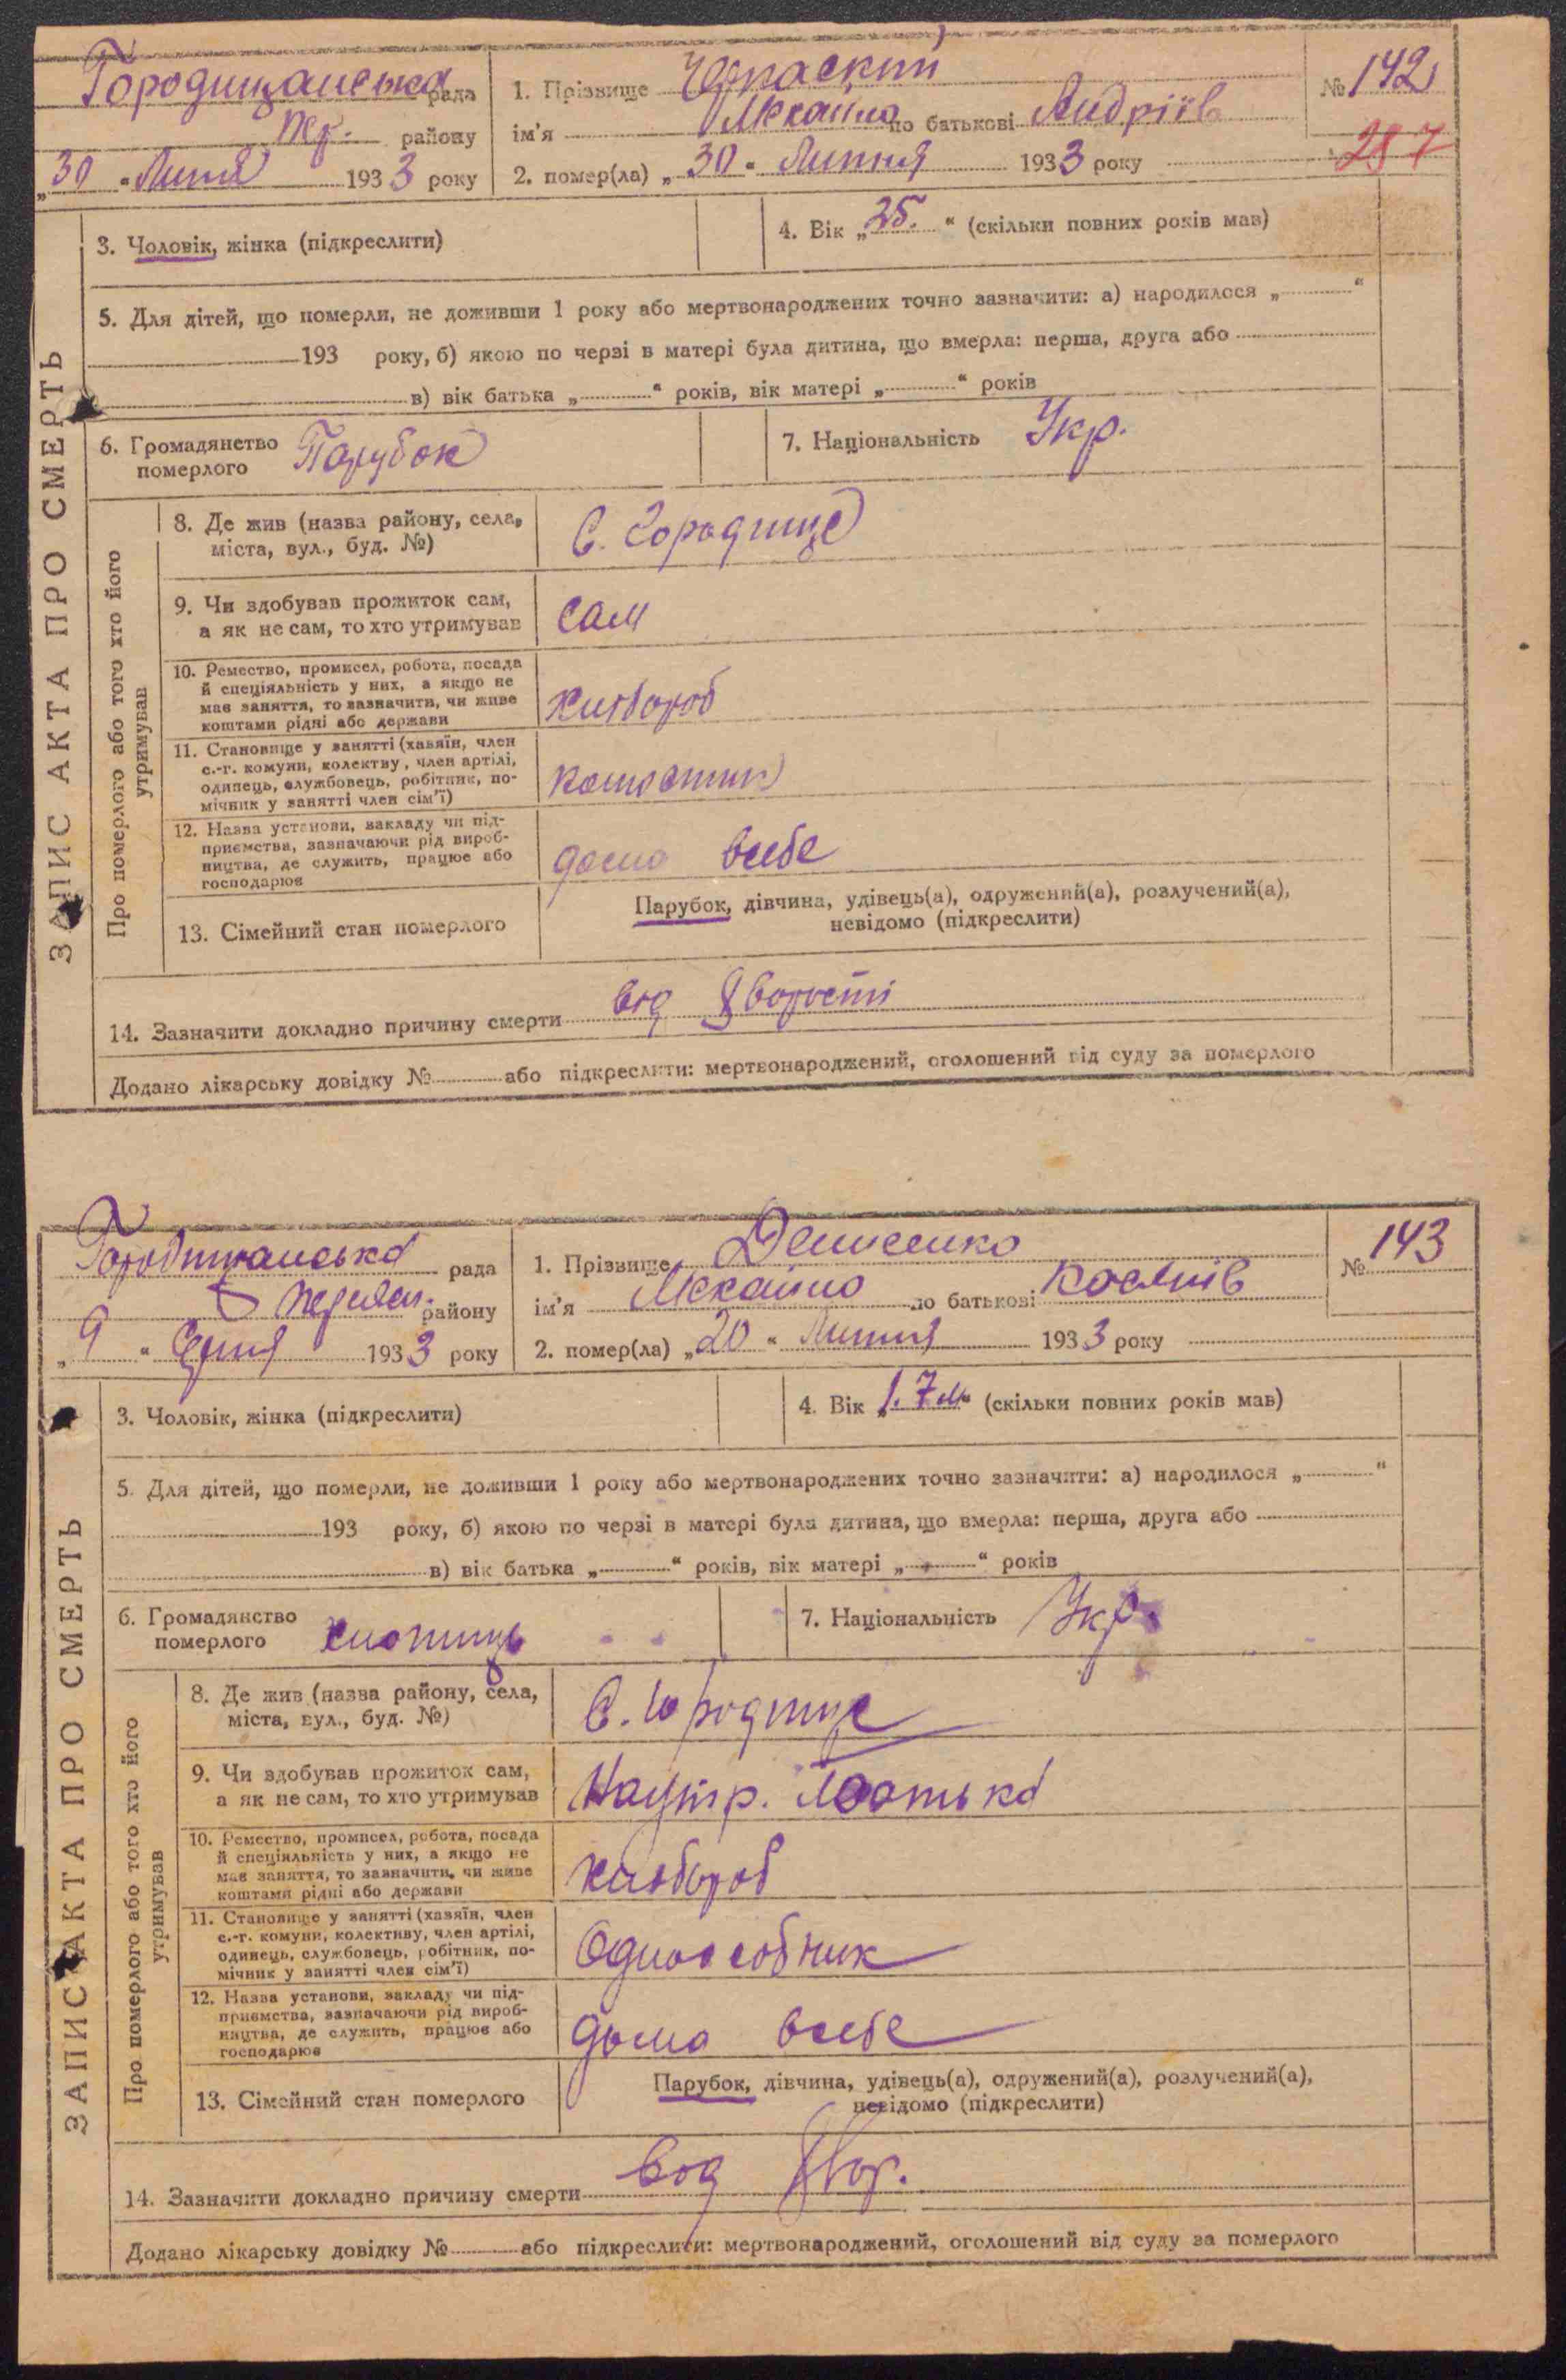 ЗАПИС АКТА ПРО СМЕРТЬ
Городищанська рада
пер. району
„30 " Липня 1933 року
1. Прізвище Черкаский
ім'я Михайло по батькові Андріїв
2. помер(ла) „30 " Липня 1933 року
№ 142
287
3. Чоловік, жінка (підкреслити)
4. Вік „25." (скільки повних років мав)
5. Для дітей, що померли, не доживши 1 року або мертвонароджених точно зазначити: а) народилося „ "
193 року, б) якою по черзі в матері була дитина, що вмерла: перша, друга або
в) вік батька „ " років, вік матері „ " років
6. Громадянство
померлого Парубок
7. Національність Укр.
Про померлого або того хто його
утримував
8. Де жив (назва району, села,
міста, вул., буд. №)
С. Городище
9. Чи здобував прожиток сам,
а як не сам, то хто утримував
сам
10. Ремество, промисел, робота, посада
й спеціяльність у них, а якщо не
має заняття, то зазначити, чи живе
коштами рідні або держави
хлібороб
11. Становище у занятті (хазяїн, член
с.-г. комуни, колективу, член артілі,
одинець, службовець, робітник, по-
мічник у занятті член сім'ї)
12. Назва установи, закладу чи під-
приємства, зазначаючи рід вироб-
ництва, де служить, працює або
господарює
дома всебе
13. Сімейний стан померлого
Парубок, дівчина, удівець(а), одружений(а), розлучений(а),
невідомо (підкреслити)
14. Зазначити докладно причину смерти від
Додано лікарську довідку № або підкреслити: мертвонароджений, оголошений від суду за померлого
ЗАПИС АКТА ПРО СМЕРТЬ
Городищанська рада
Переяс. району
„ 9 " Серпня 1933 року
1. Прізвище Денисенко
ім'я Михайло по батькові Костів
2. помер(ла) „20 " Липня 1933 року
№ 143
3. Чоловік, жінка (підкреслити)
4. Вік „1. 7 м" (скільки повних років мав)
5. Для дітей, що померли, не доживши 1 року або мертвонароджених точно зазначити: а) народилося „ "
193 року, б) якою по черзі в матері була дитина, що вмерла: перша, друга або
в) вік батька „ " років, вік матері „ " років
6. Громадянство
померлого хлопиць
7. Національність Укр.
Про померлого або того хто його
утримував
8. Де жив (назва району, села,
міста, вул., буд. №)
С. Городище
9. Чи здобував прожиток сам,
а як не сам, то хто утримував
На утр. Батька
10. Ремество, промисел, робота, посада
й спеціяльність у них, а якщо не
має заняття, то зазначити, чи живе
коштами рідні або держави
хлібороб
11. Становище у занятті (хазяїн, член
с.-г. комуни, колективу, член артілі,
одинець, службовець, робітник, по-
мічник у занятті член сім'ї)
Одноособник
12. Назва установи, закладу чи під-
приємства, зазначаючи рід вироб-
ництва, де служить, працює або
господарює
дома всебе
13. Сімейний стан померлого
Парубок, дівчина, удівець(а), одружений(а), розлучений(а),
невідомо (підкреслити)
14. Зазначити докладно причину смерти вод хвор.
Додано лікарську довідку № або підкреслити: мертвонароджений, оголошений від суду за померлого